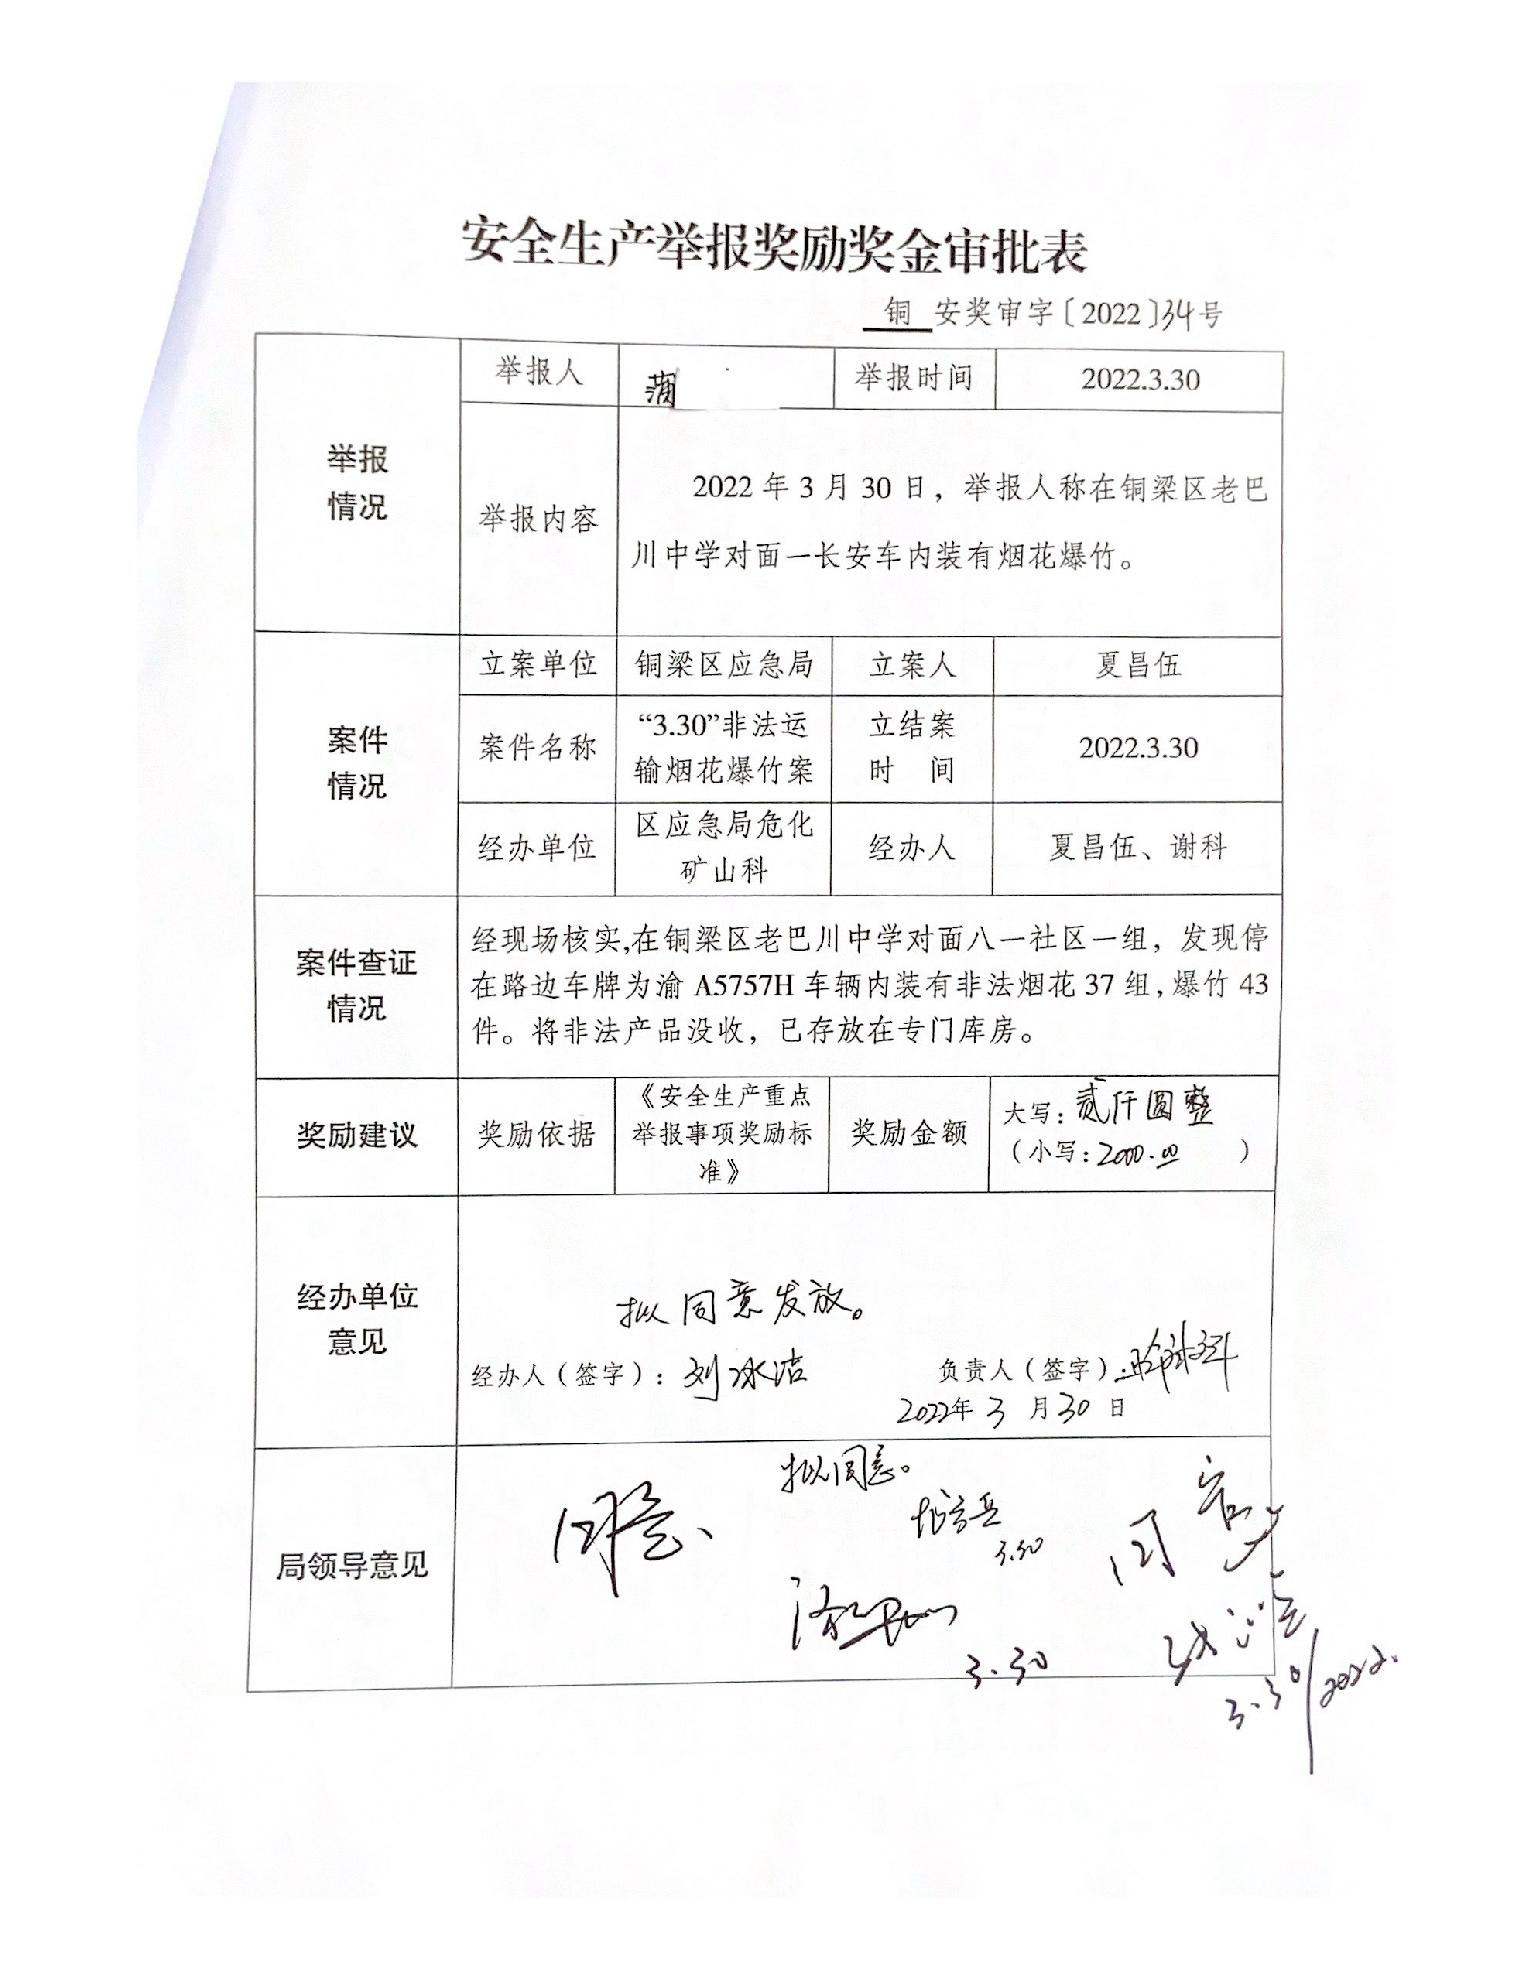 安全生产举报奖励奖金审批表
铜 安奖审字〔2022〕34号
举报情况
举报人 蒲 举报时间 2022.3.30
举报内容
2022年3月30日，举报人称在铜梁区老巴
川中学对面一长安车内装有烟花爆竹。
案件情况
立案单位 铜梁区应急局 立案人 夏昌伍
案件名称 “3.30”非法运输烟花爆竹案 立结案时 间 2022.3.30
经办单位 区应急局危化矿山科 经办人 夏昌伍、谢科
案件查证情况
经现场核实,在铜梁区老巴川中学对面八一社区一组，发现停
在路边车牌为渝A5757H车辆内装有非法烟花37组,爆竹43
件。将非法产品没收，已存放在专门库房。
奖励建议 奖励依据 《安全生产重点举报事项奖励标准》 奖励金额
大写：贰仟圆整
（小写：2000.00 ）
经办单位意见
拟同意发放。
经办人（签字）：刘冰洁 负责人（签字）：
2022年3月30日
局领导意见
拟同意。
同意、
3.30
3.30
3.30/2022.